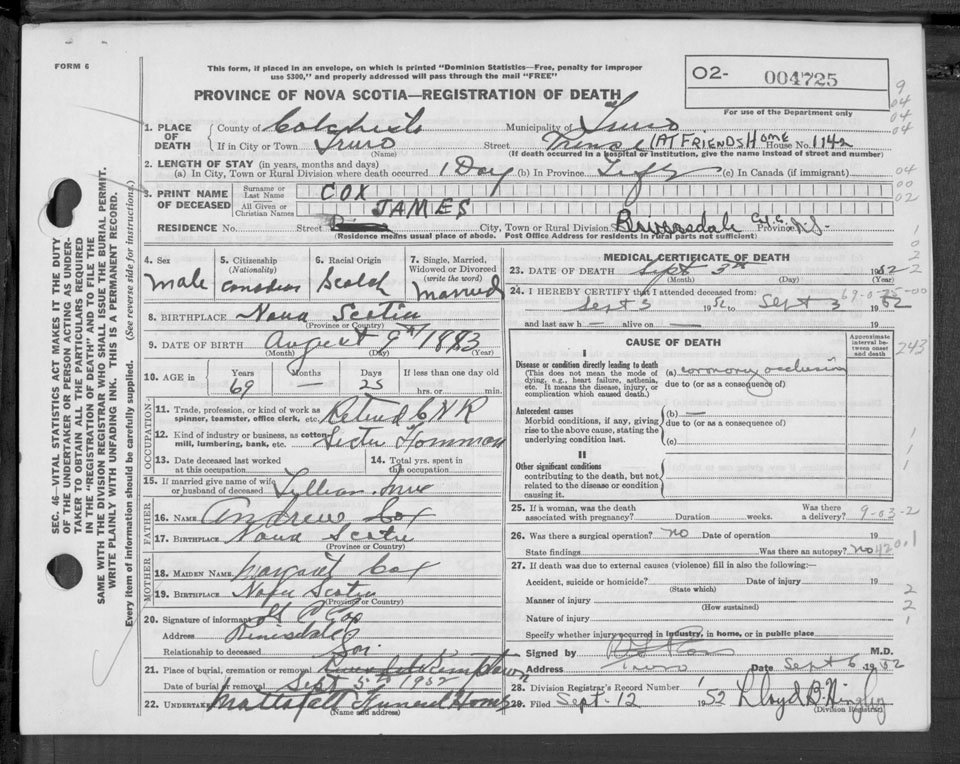 FORM 6
This form, if placed in an envelope, on which is printed "Dominion Statistics—Free, penalty for improper
use $300," and properly addressed will pass through the mail "FREE"
O2- 004725
For use of the Department only
PROVINCE OF NOVA SCOTIA—REGISTRATION OF DEATH
9
04
04
04
1. PLACE OF DEATH { County of Colchester Municipality of Truro
If in City or Town Truro (Name) Street Prince (AT FRIENDS HOME House No. 1142
(If death occurred in a hospital or institution, give the name instead of street and number)
2. LENGTH OF STAY (in years, months and days)
(a) In City, Town or Rural Division where death occurred 1 Day (b) In Province Life (c) In Canada (if immigrant)
04
00
02
3. PRINT NAME OF DECEASED { Surname or Last Name COX
All Given or Christian Names JAMES
RESIDENCE No. Street City, Town or Rural Division Province N.S.
(Residence means usual place of abode. Post Office Address for residents in rural parts not sufficient)
4. Sex Male
5. Citizenship (Nationality) Canadian
6. Racial Origin Scotch
7. Single, Married, Widowed or Divorced (write the word) Married
8. BIRTHPLACE Nova Scotia
(Province or Country)
9. DATE OF BIRTH August 9th 1883
(Month) (Day) (Year)
10. AGE in Years 69 Months — Days 25 If less than one day old
hrs. or min.
OCCUPATION
11. Trade, profession, or kind of work as
spinner, teamster, office clerk, etc. Retired CNR
12. Kind of industry or business, as cotton
mill, lumbering, bank, etc.
13. Date deceased last worked
at this occupation
14. Total yrs. spent in
this occupation
15. If married give name of wife
or husband of deceased Lillian
FATHER
16. NAME Andrew Cox
17. BIRTHPLACE Nova Scotia
(Province or Country)
MOTHER
18. MAIDEN NAME Margaret Cox
19. BIRTHPLACE Nova Scotia
(Province or Country)
20. Signature of informant Cox
Address
Relationship to deceased Son
21. Place of burial, cremation or removal Kemptown
Date of burial or removal Sept 5th 1952
22. Undertaker Mattatall Funeral Home
(Name and address)
MEDICAL CERTIFICATE OF DEATH
23. DATE OF DEATH Sept 3rd 1952
(Month) (Day) (Year)
24. I HEREBY CERTIFY that I attended deceased from:
69-0-25-00
Sept 3 1952 Sept 3 1952
and last saw h— alive on — 19
CAUSE OF DEATH
Approximate interval between onset and death
243
I
Disease or condition directly leading to death
(This does not mean the mode of
dying, e.g., heart failure, asthenia,
etc. It means the disease, injury, or
complication which caused death.)
(a) coronary occlusion
due to (or as a consequence of)
Antecedent causes
Morbid conditions, if any, giving
rise to the above cause, stating the
underlying condition last.
(b) —
due to (or as a consequence of)
(c)
II
Other significant conditions
contributing to the death, but not
related to the disease or condition
causing it.
25. If a woman, was the death
associated with pregnancy? Duration weeks. Was there
a delivery?
9-03-2
26. Was there a surgical operation? no Date of operation 19
State findings Was there an autopsy? no
420.1
27. If death was due to external causes (violence) fill in also the following:
Accident, suicide or homicide? Date of injury 19
(State which)
Manner of injury
(How sustained)
Nature of injury
Specify whether injury occurred in industry, in home, or in public place
Signed by M.D.
Address Truro Date Sept 6 1952
28. Division Registrar's Record Number
29. Filed Sept 12 1952 Lloyd B.
(Division Registrar)
SEC. 46—VITAL STATISTICS ACT MAKES IT THE DUTY
OF THE UNDERTAKER OR PERSON ACTING AS UNDER-
TAKER TO OBTAIN ALL THE PARTICULARS REQUIRED
IN THE "REGISTRATION OF DEATH" AND TO FILE THE
SAME WITH THE DIVISION REGISTRAR WHO SHALL ISSUE THE BURIAL PERMIT.
WRITE PLAINLY WITH UNFADING INK. THIS IS A PERMANENT RECORD.
Every item of information should be carefully supplied. (See reverse side for instructions.)